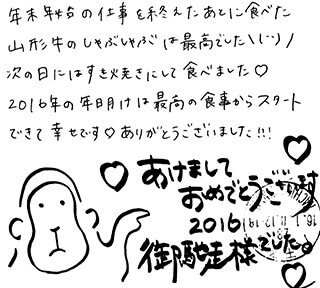 年末年始の仕事を終えたあとに食べた
山形牛のしゃぶしゃぶは最高でした\(^^)/
次の日にはすき焼きにして食べました♡
2016年の年明けは最高の食事からスタート
できて幸せです♡ありがとうございました!!!
あけまして
おめでとうござい
2016
御馳走様でした。